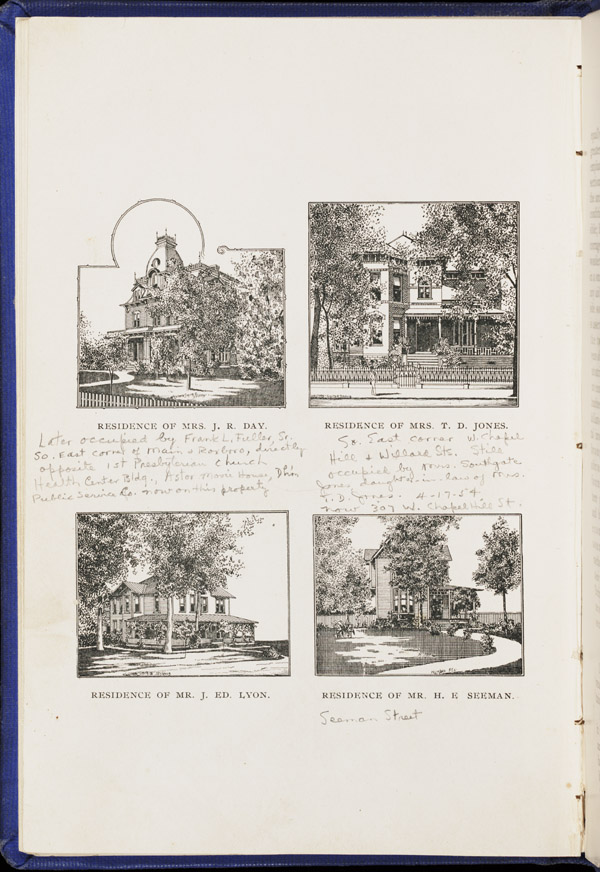 RESIDENCE OF MRS. J. R. DAY.
Later occupied by Frank L. Fuller, Sr.
So. East corner of Main & Roxboro, directly
opposite 1st Presbyterian Church
Health Center Bldg., Astor Movie House, Dhm
Public Service Co. now on this property
RESIDENCE OF MRS. T. D. JONES.
So. East corner W. Chapel
Hill & Willard Sts. Still
occupied by Mrs. Southgate
Jones, daughter-in-law of Mrs.
T. D. Jones. 4-17-54.
now 307 W. Chapel Hill St.
RESIDENCE OF MR. J. ED. LYON.
RESIDENCE OF MR. H. E SEEMAN.
Seeman Street